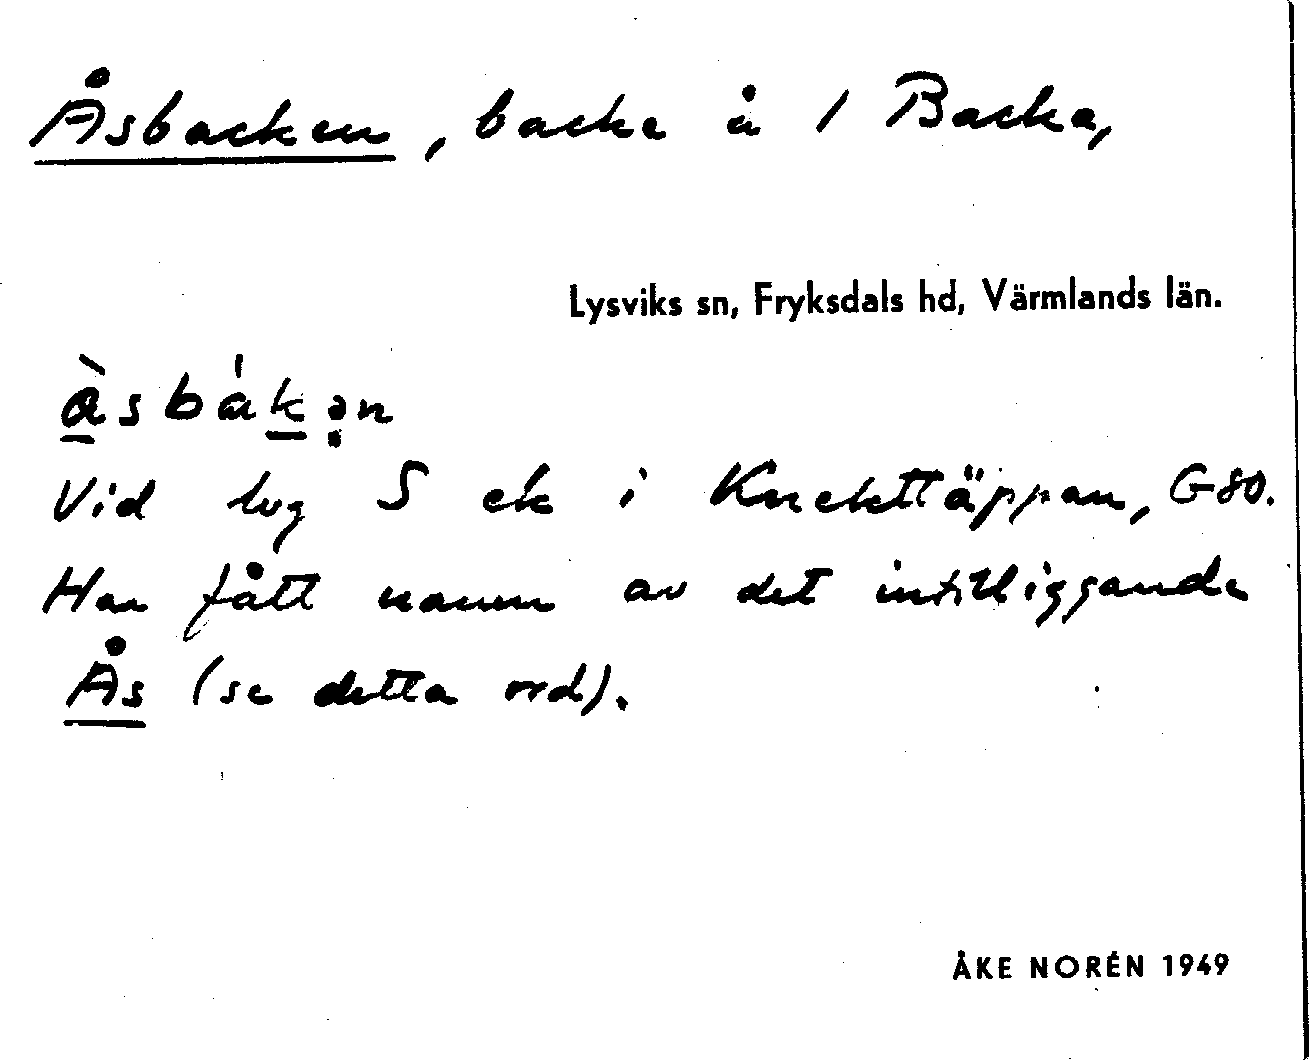 Åsbacken, backe å 1 Backa,
Lysviks sn, Fryksdals hd, Värmlands län.
àsbák̠ə̣n
Vid lvg S ek i Knekttäppan, G80.
Har fått namn av det intilliggande
Ås (se detta ord).
ÅKE NORÉN 1949